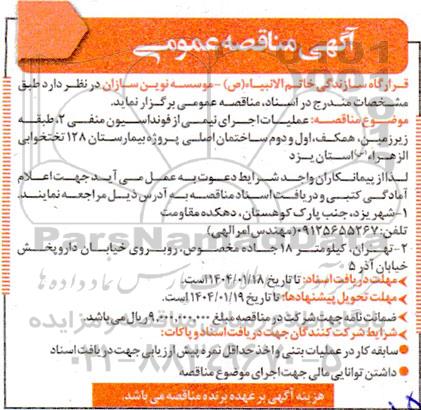 آگهی مناقصه عمومی
قرارگاه سازندگی خاتم الانبیاء(ص) -موسسه نوین سازان در نظر دارد طبق
مشخصات مندرج در اسناد، مناقصه عمومی برگزار نماید.
موضوع مناقصه: عملیات اجرای نیمی از فونداسیون منفی ۲، طبقه
زیرزمین، همکف، اول و دوم ساختمان اصلی پروژه بیمارستان ۱۲۸ تختخوابی
الزهراء استان یزد
لذا از پیمانکاران واجد شرایط دعوت به عمل می آید جهت اعلام
آمادگی کتبی و دریافت اسناد مناقصه به آدرس ذیل مراجعه نمایند.
۱-شهر یزد، جنب پارک کوهستان، دهکده مقاومت
تلفن: ۰۹۱۲۵۶۵۵۲۶۷ (مهندس امرالهی)
۲-تهران، کیلومتر ۱۸ جاده مخصوص، روبروی خیابان داروپخش
خیابان آذر ۵
مهلت دریافت اسناد: تا تاریخ ۱۴۰۴/۰۱/۱۸ است.
مهلت تحویل پیشنهادها: تا تاریخ ۱۴۰۴/۰۱/۱۹ است.
ضمانت نامه جهت شرکت در مناقصه مبلغ ۹.۰۰۰.۰۰۰.۰۰۰ ریال می باشد.
شرایط شرکت کنندگان جهت دریافت اسناد و پاکات:
سابقه کار در عملیات بتنی و اخذ حداقل نمره پیش ارزیابی جهت دریافت اسناد
داشتن توانایی مالی جهت اجرای موضوع مناقصه
هزینه آگهی بر عهده برنده مناقصه می باشد.